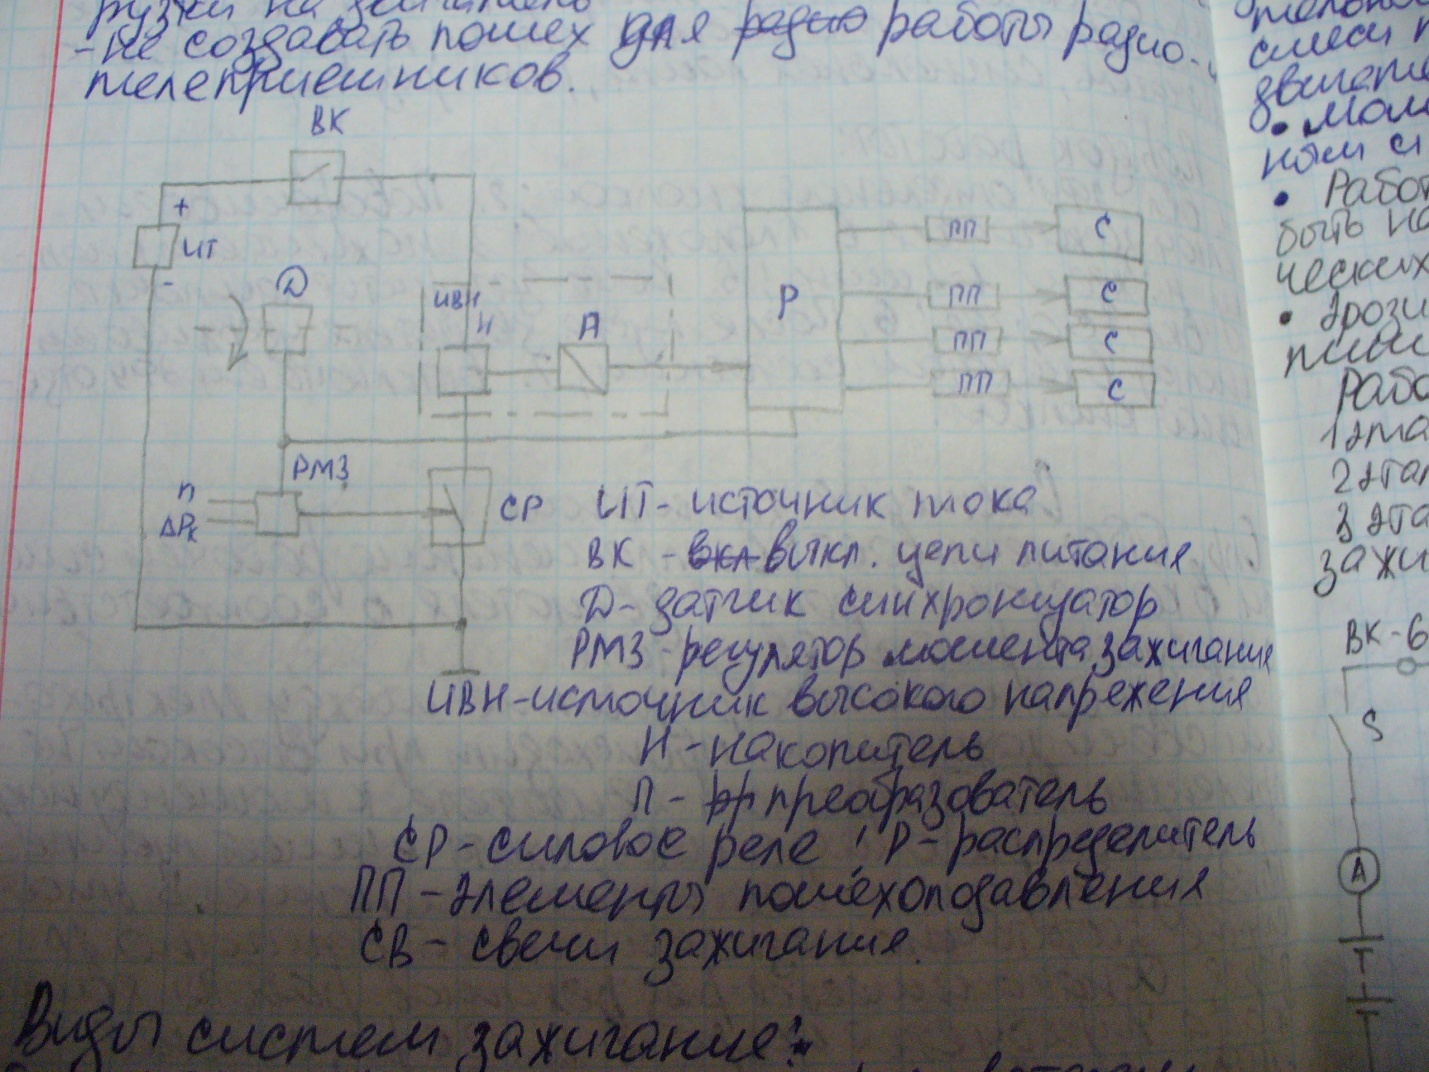 рузки на двигатель
- не создавать помех для радио работы радио-
телеприемников.
ВК
+
ИТ
-
Д
ИВН
Н
П
Р
ПП
С
ПП
С
ПП
С
ПП
С
РМЗ
n
ΔPк
СР
ИТ- источник тока
ВК - вкл выкл. цепи питания
Д- датчик синхронизатор
РМЗ-регулятор момента зажигания
ИВН-источник высокого напрежения
Н-накопитель
П- преобразователь
СР-силовое реле ; Р-распределитель
ПП-элементы помехоподавления
СВ- свечи зажигания.
Виды систем зажигание:
смеси
двигате
ном
• Работ
быть на
ческих
• Эрози
Рабо
1 эта
2 этап
3 эта
зажи
ВК-6
S
А